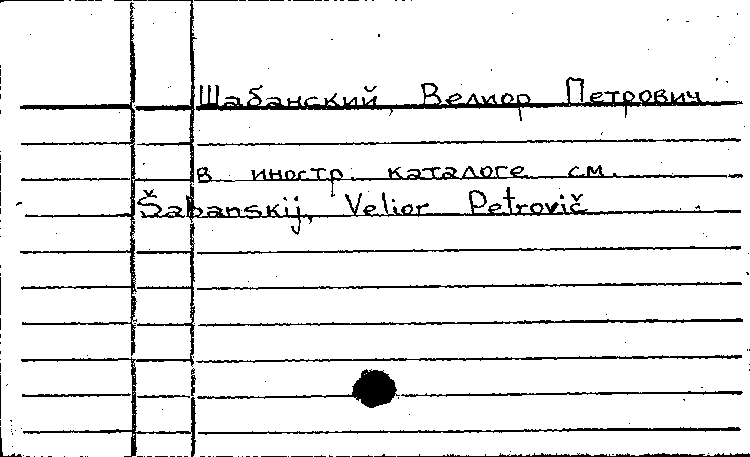 Шабанский, Велиор Петрович
в иностр. каталоге см.
Šabanskij, Velior Petrovič